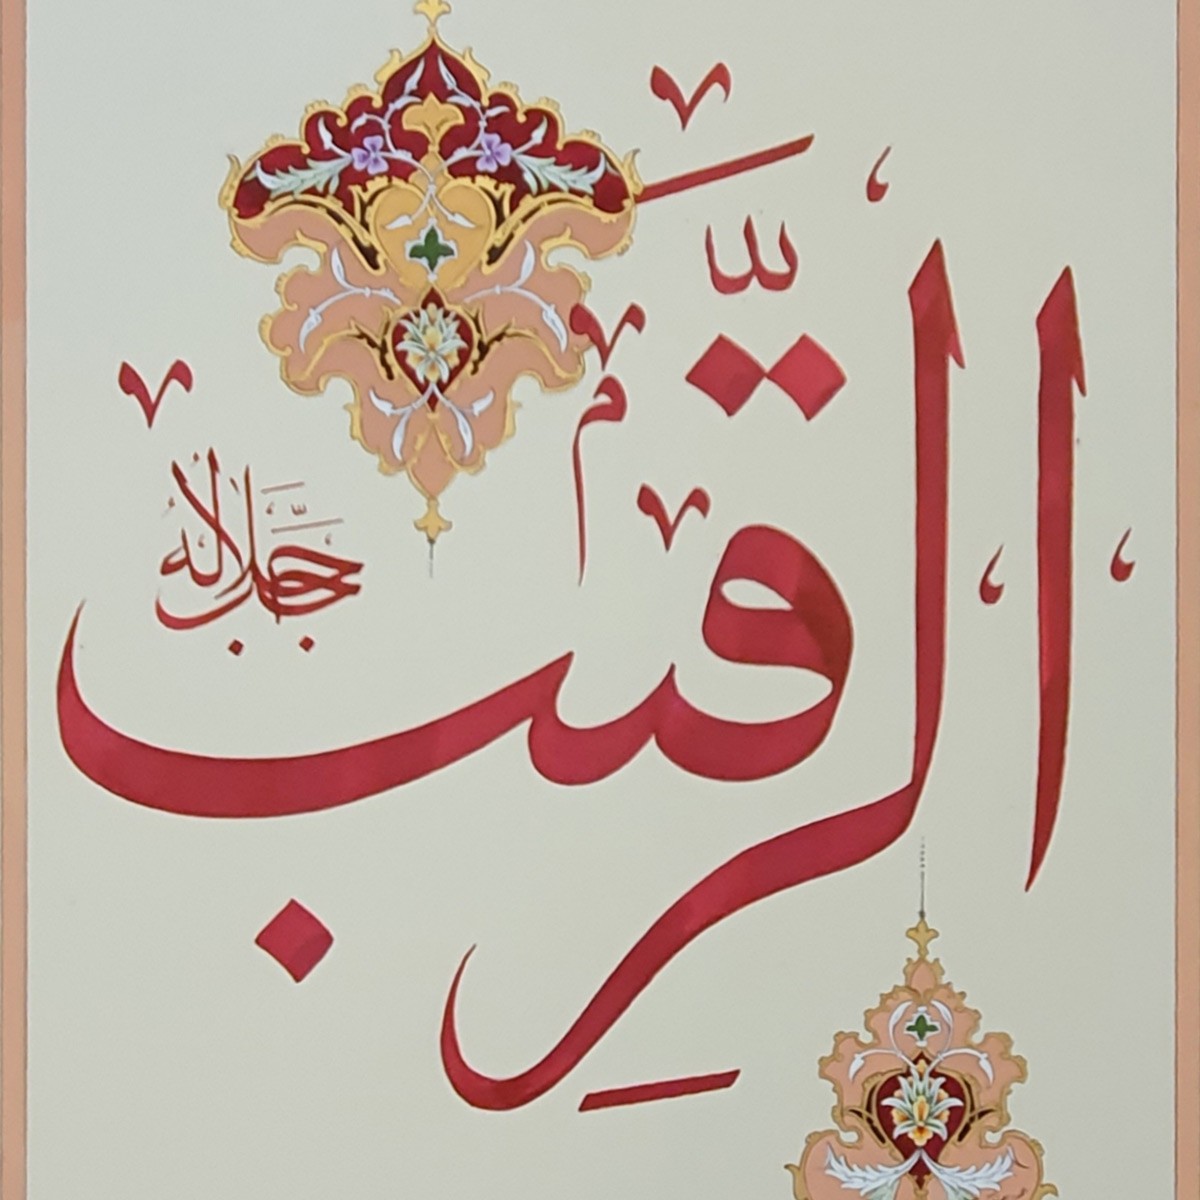 الرقيب
جل جلاله